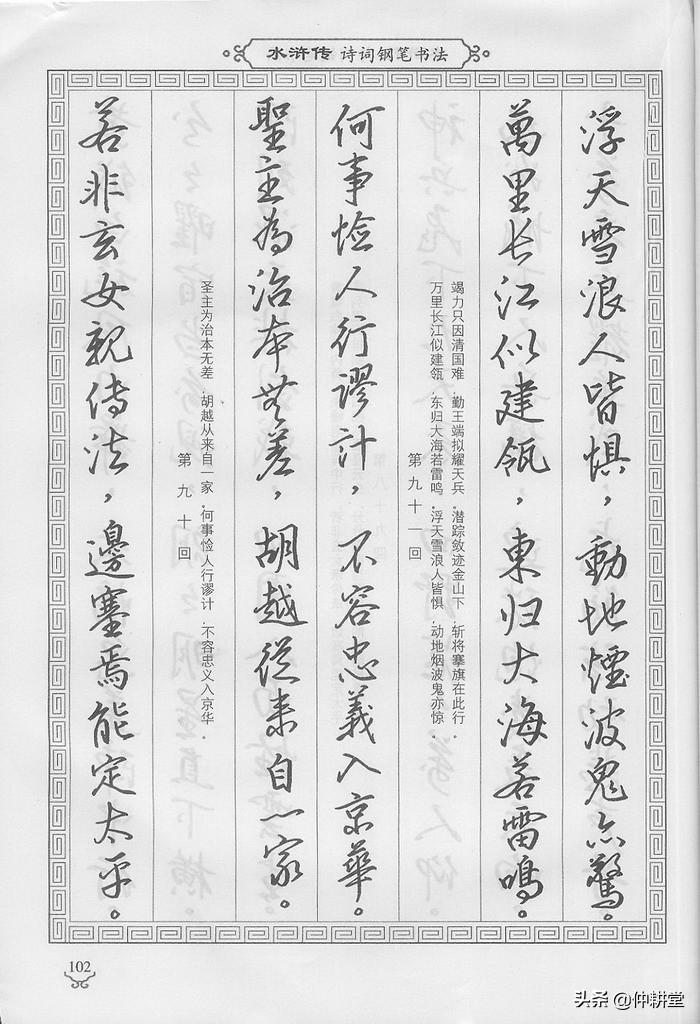 水浒传 诗词钢笔书法
若非玄女親傳法，邊塞焉能定太平。
第九十回
圣主为治本无差，胡越从来自一家，何事憸人行谬计，不容忠义入京华．
聖主為治本無差，胡越從来自一家。
何事憸人行謬計，不容忠義入京華。
第九十一回
万里长江似建瓴，东归大海若雷鸣．浮天雪浪人皆惧，动地烟波鬼亦惊．
竭力只因清国难，勤王端拟耀天兵．潜踪敛迹金山下，斩将搴旗在此行．
萬里长江似建瓴，東归大海若雷鳴。
浮天雪浪人皆惧，動地煙波鬼亦驚。
102
头条 @仲耕堂